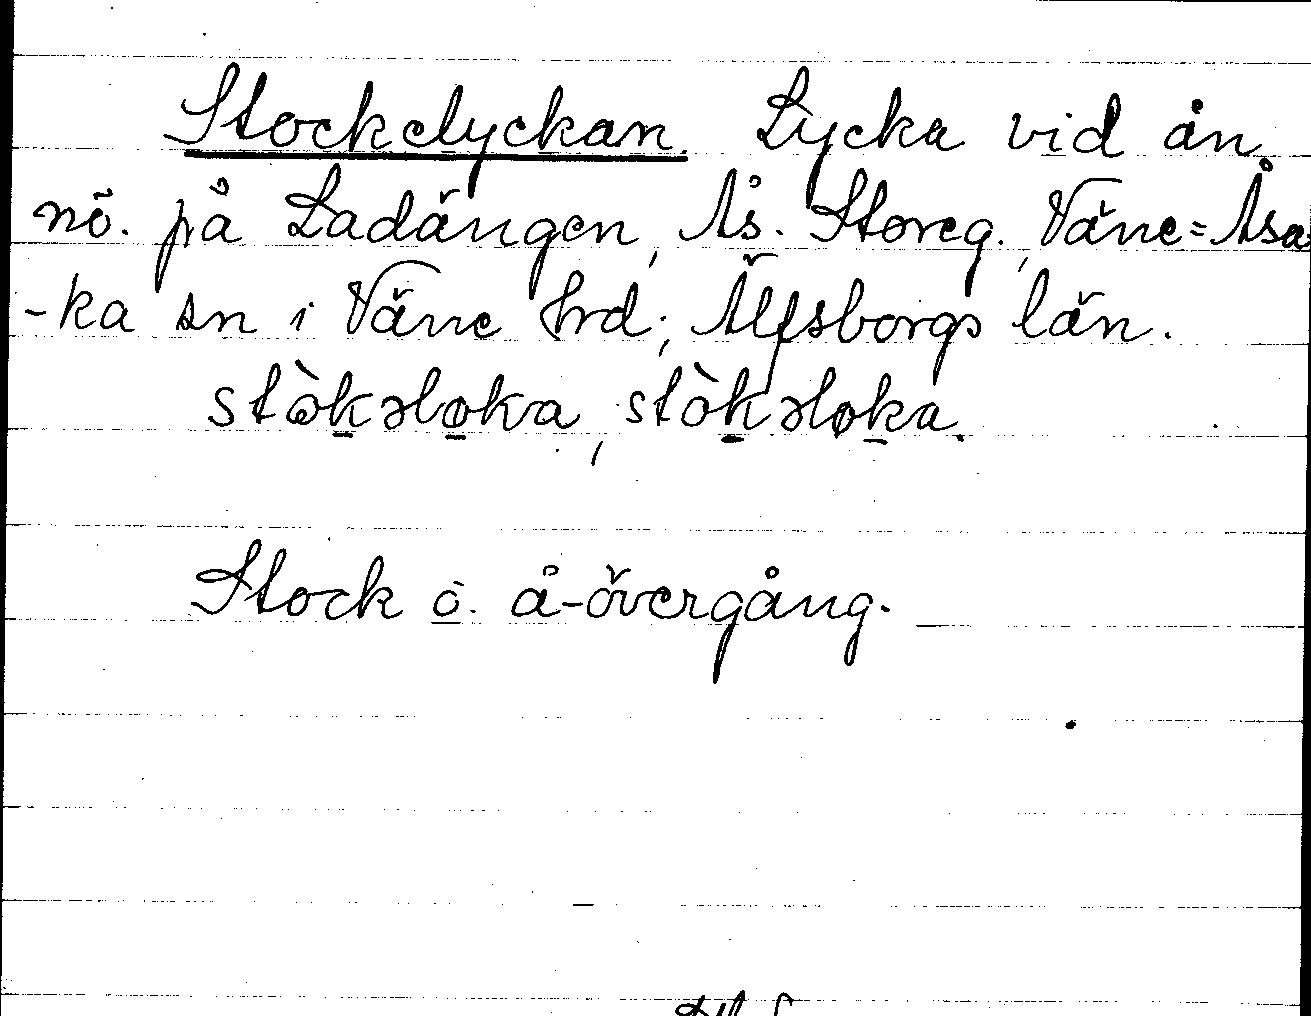 Stockelyckan. Lycka vid ån
nö. på Ladängen, Ås. Storeg., Väne=Åsa-
-ka sn i Väne hrd; Älfsborgs län.
stòkəloka, stòkəloka.
Stock ö. å-övergång.